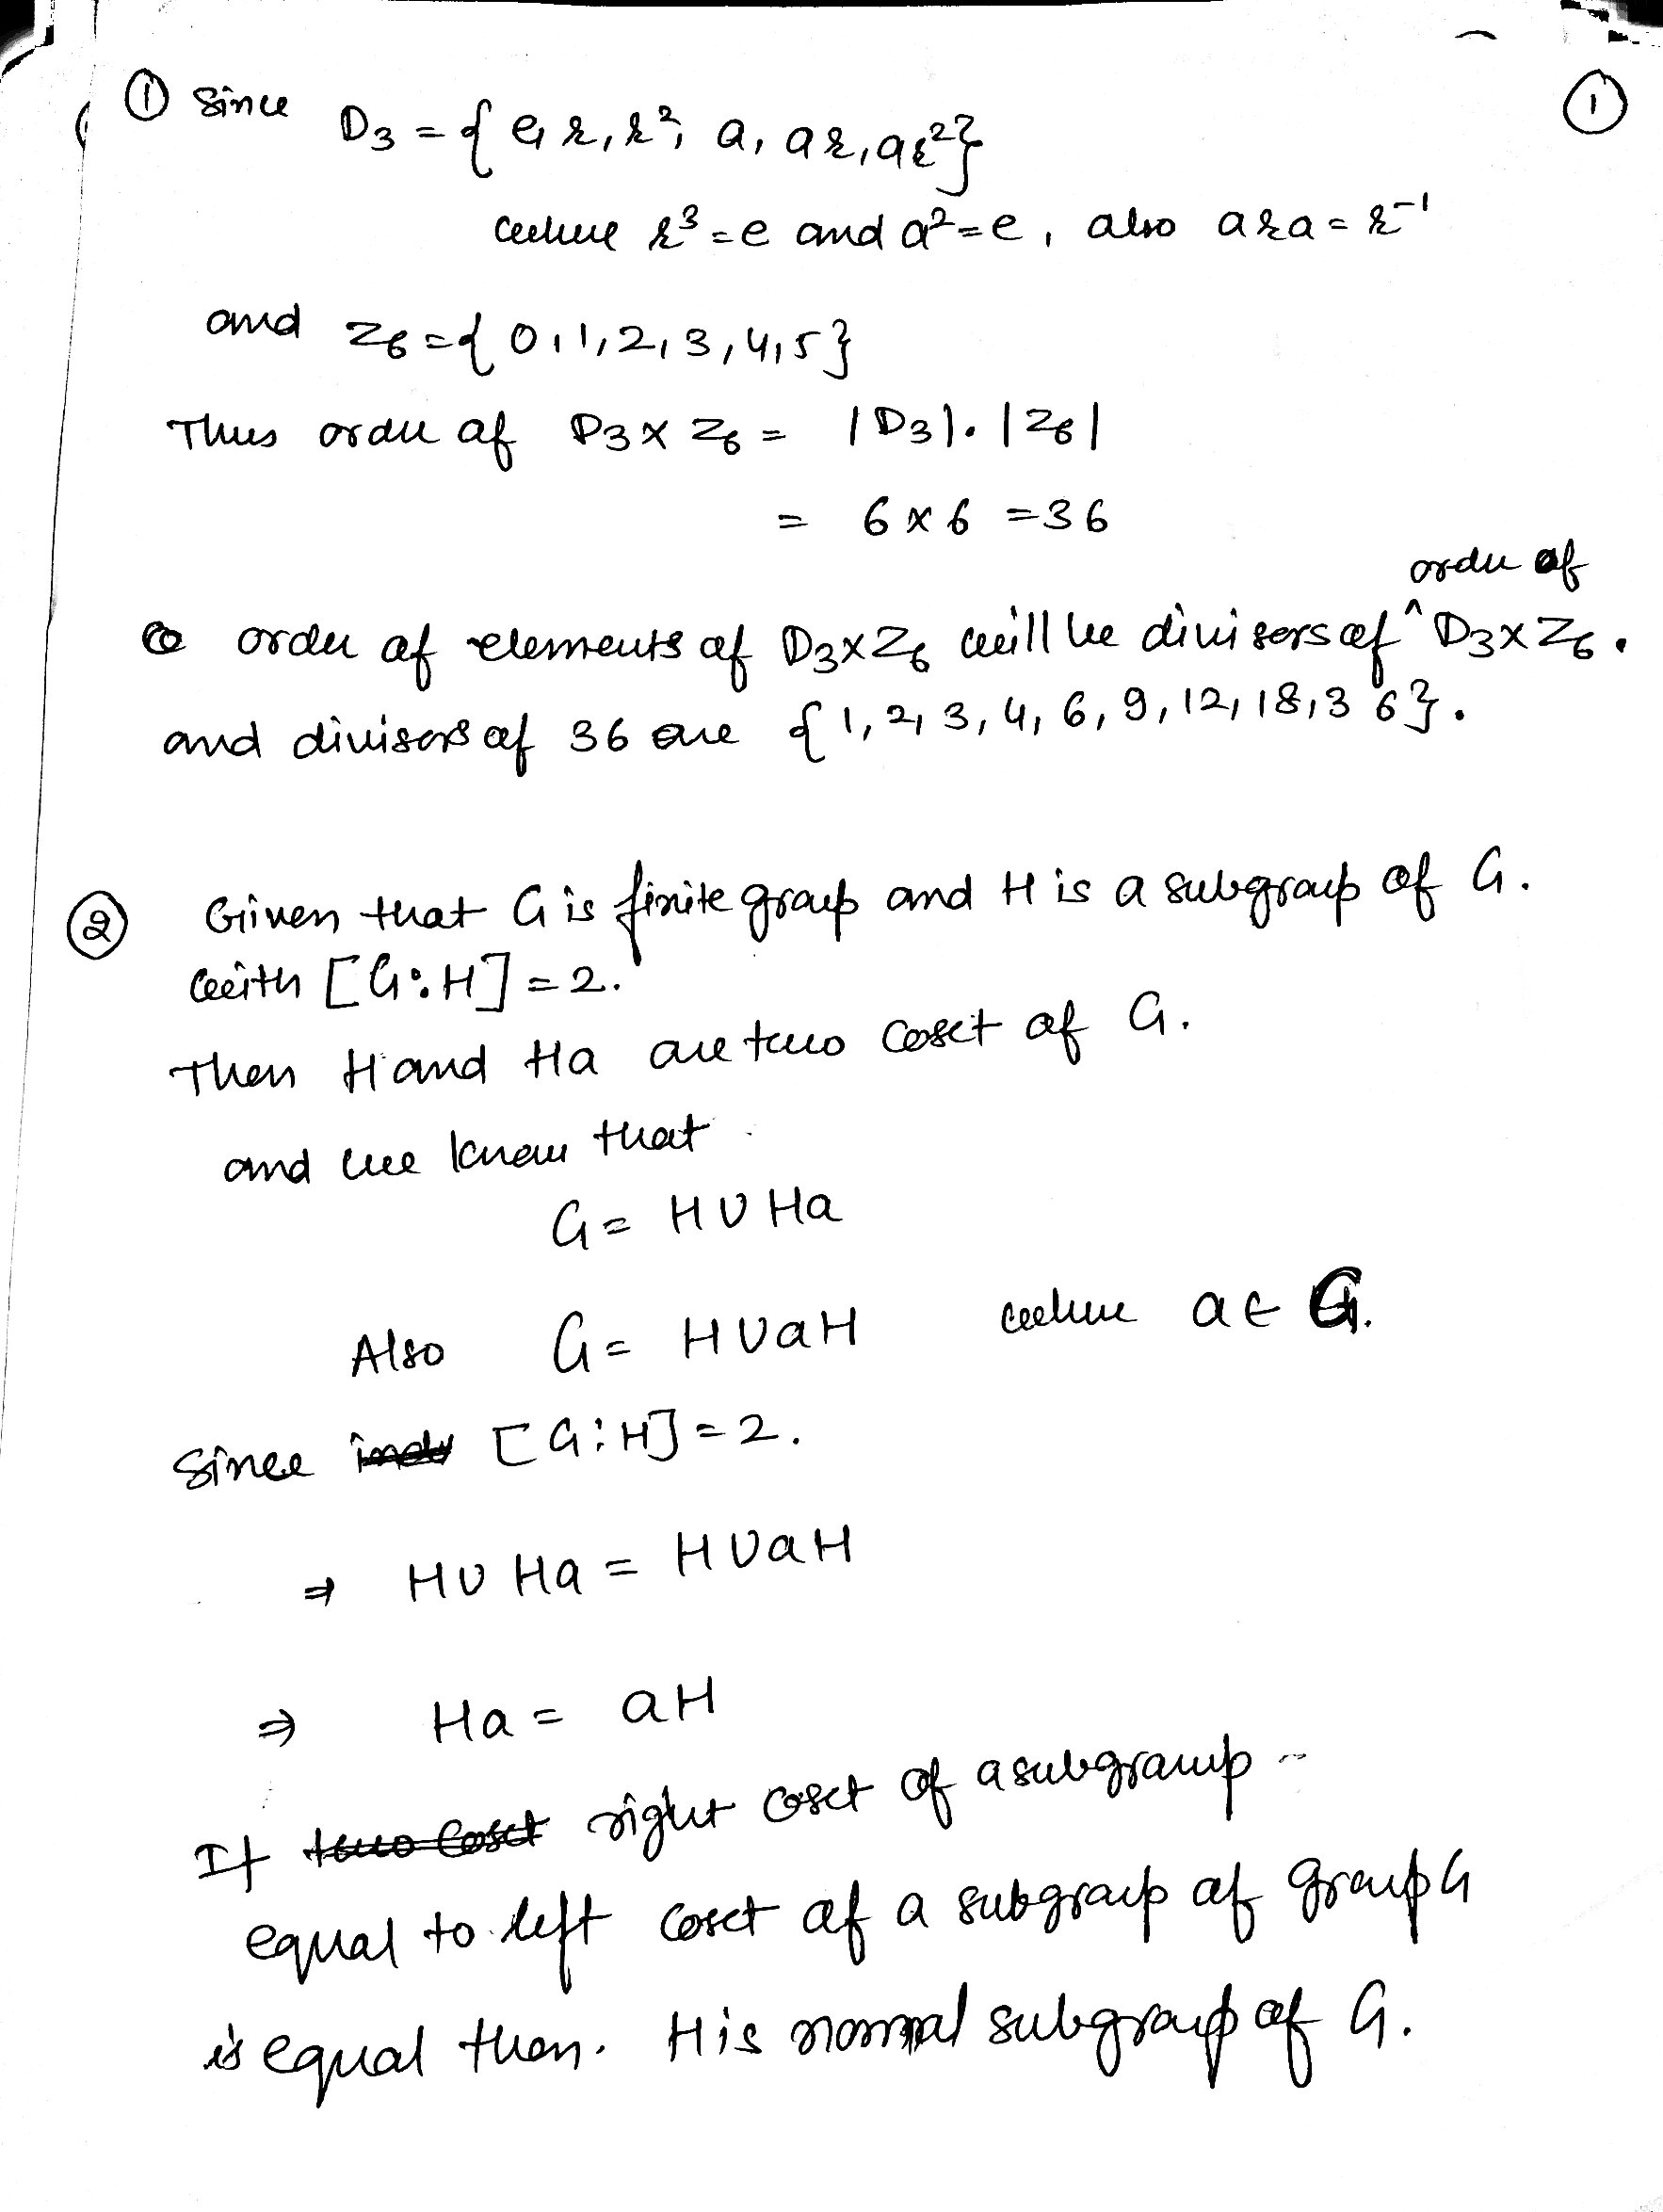 ① Since D3 = { e, r, r², a, ar, ar² }
①
where r³ = e and a² = e, also ara = r⁻¹
and Z6 = { 0, 1, 2, 3, 4, 5 }
Thus order of D3 × Z6 = |D3|. |Z6|
= 6 × 6 = 36
order of
order of elements of D3×Z6 will be divisors of ^ D3×Z6.
and divisors of 36 are { 1, 2, 3, 4, 6, 9, 12, 18, 36 }.
② Given that G is finite group and H is a subgroup of G.
with [G:H] = 2.
Then H and Ha are two coset of G.
and we know that
G = H ∪ Ha
Also G = H ∪ aH where a ∈ G.
Since [G:H] = 2.
⇒ H ∪ Ha = H ∪ aH
⇒ Ha = aH
If two coset right coset of a subgroup
equal to left coset of a subgroup of group G
is equal then. H is normal subgroup of G.